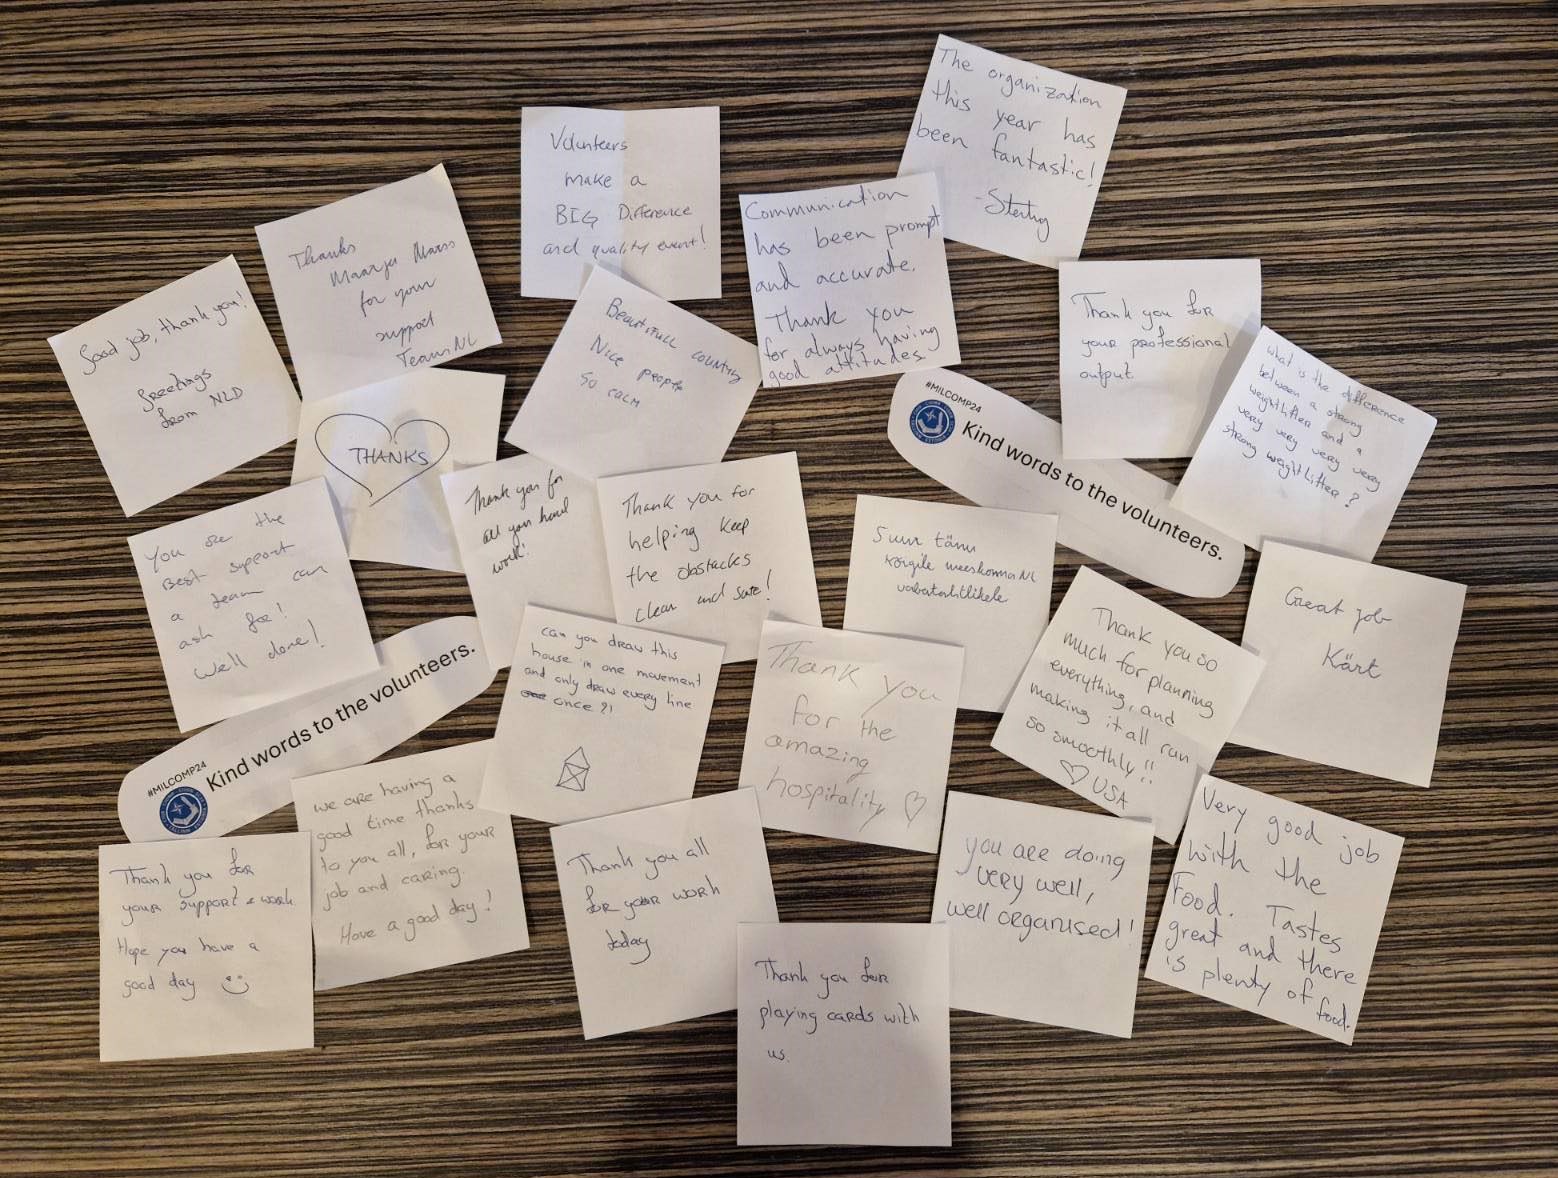 The organization
this year has
been fantastic!
-Sterling
Volunteers
make a
BIG Difference
and quality event!
Communication
has been prompt
and accurate.
Thank you
for always having
good attitudes
Thanks
Maarja Mass
for your
support
Team NL
Good job, thank you!
Greetings
from NLD
Beautifull country
Nice people
So calm
Thank you for
your professional
output
what is the difference
between a strong
weightlifter and a
very very very very
strong weightlifter?
#MILCOMP24
Kind words to the volunteers.
THANKS
Thank you for
all your hard
work!
Thank you for
helping keep
the obstacles
clean and safe!
Suur tänu
kõigile meeskonna NL
vabatahtlikele
You are the
Best support
a team can
ask for!
Well done!
Great job
Kärt
can you draw this
house in one movement
and only draw every line
once ?!
Thank you
for the
amazing
hospitality ♡
Thank you so
much for planning
everything, and
making it all run
so smoothly!!
♡ USA
#MILCOMP24
Kind words to the volunteers.
we are having a
good time thanks
to you all, for your
job and caring.
Have a good day!
Very good job
with the
Food. Tastes
great and there
is plenty of
food.
Thank you for
your support & work
Hope you have a
good day
Thank you all
for your work
today
you are doing
very well,
well organised!
Thank you for
playing cards with
us.